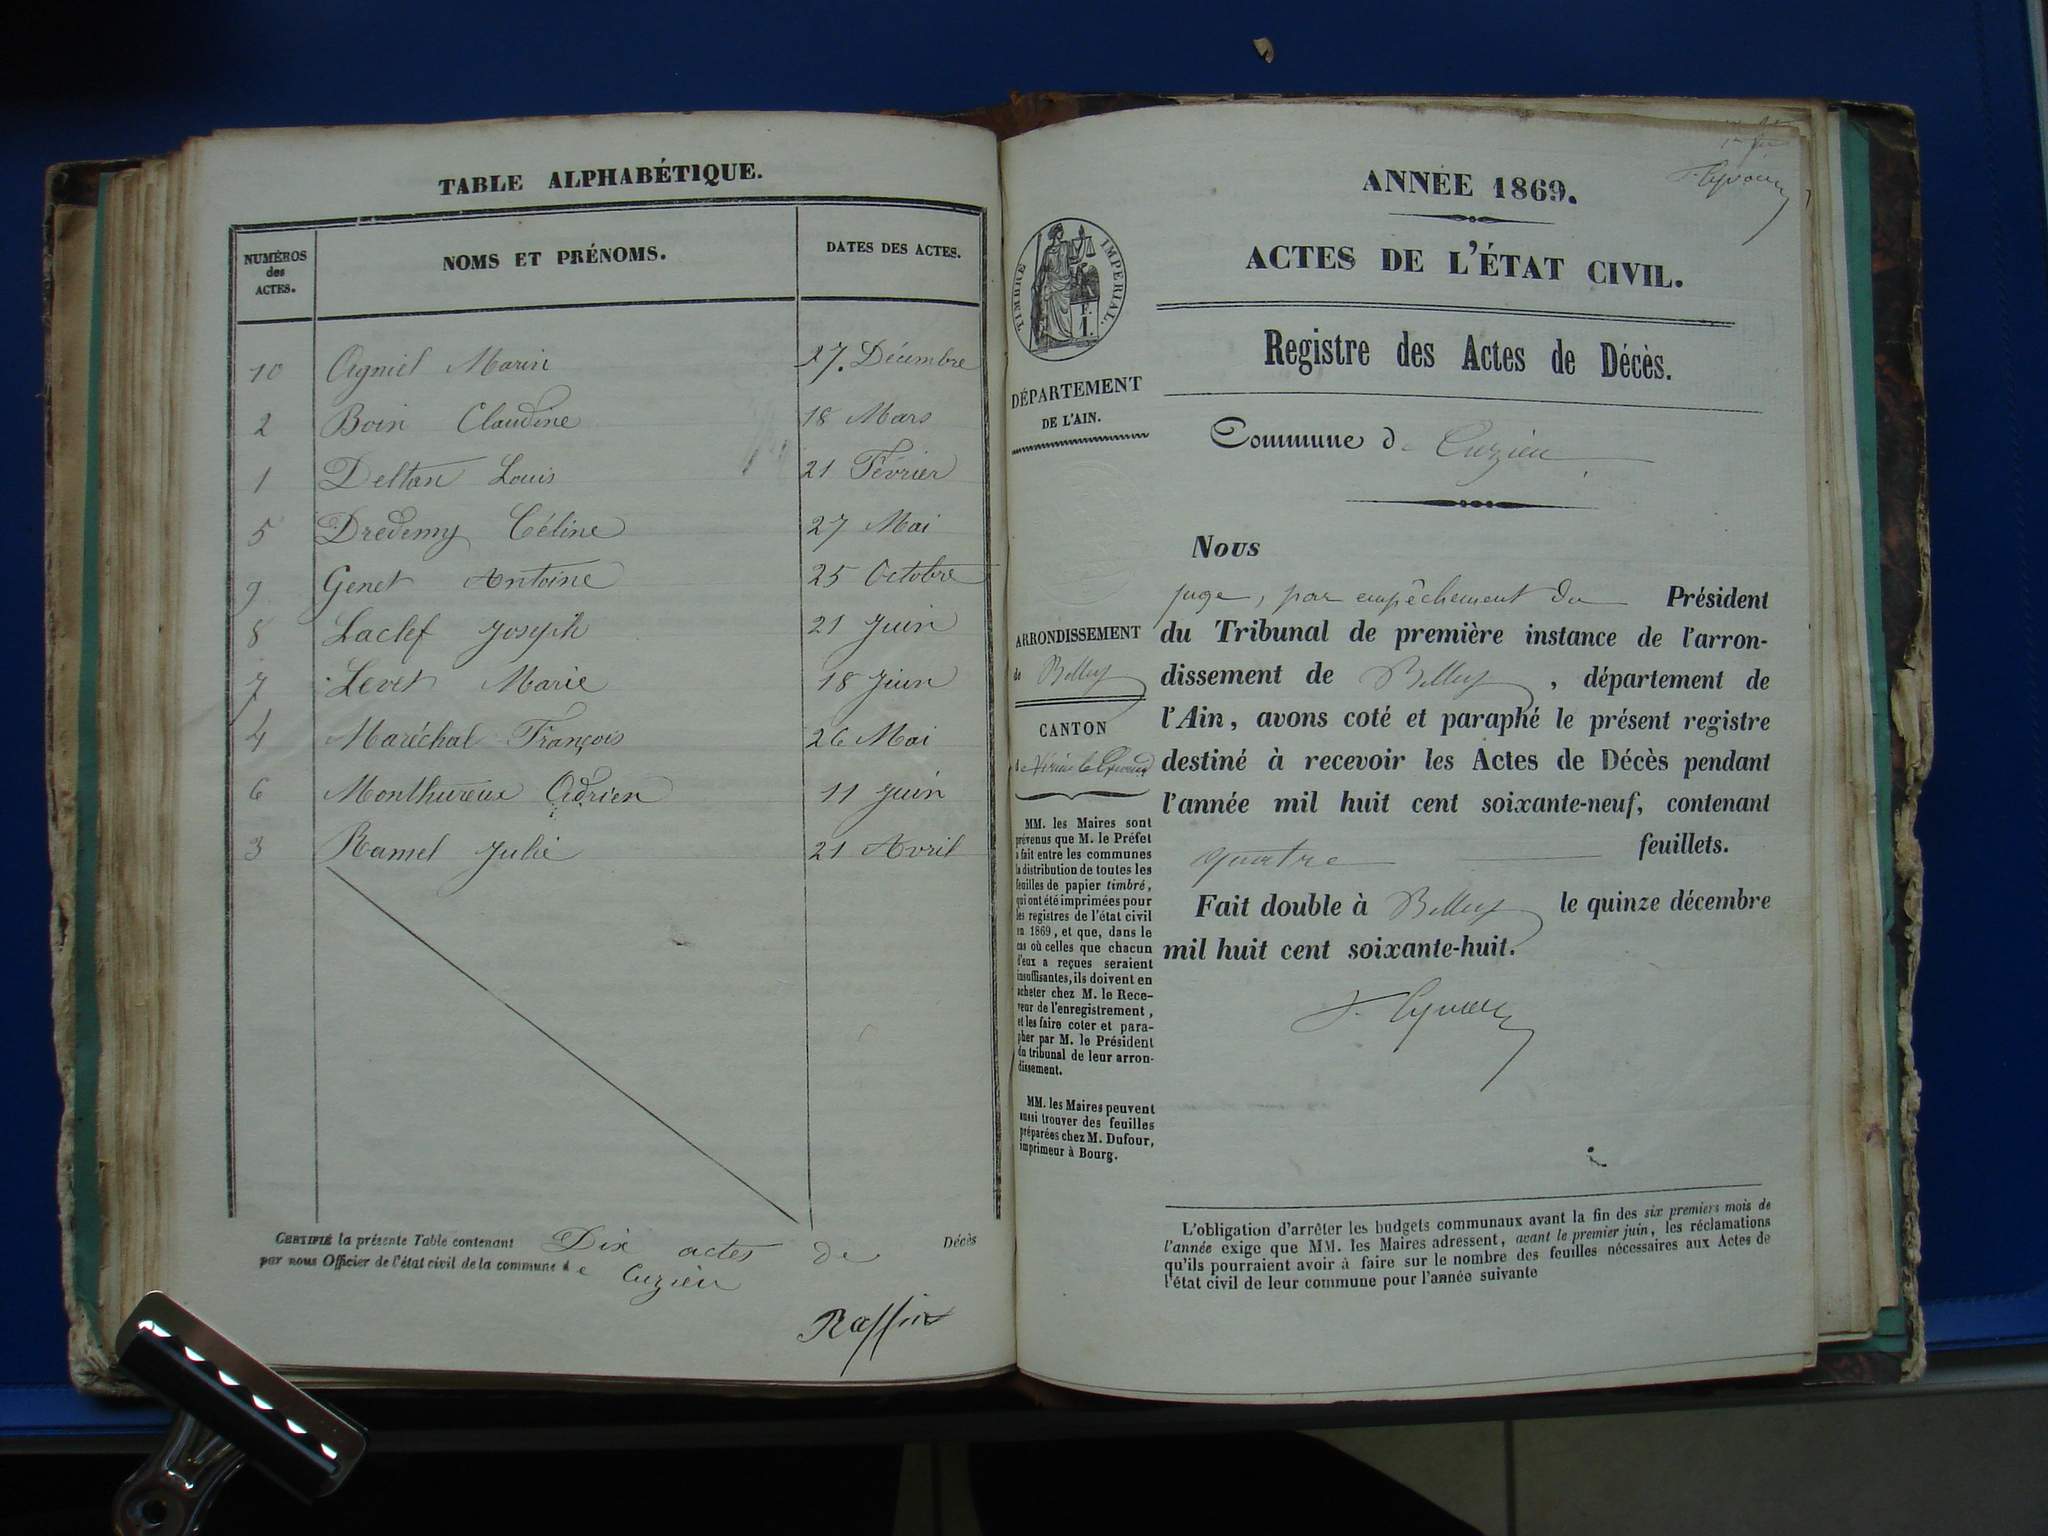 TABLE ALPHABÉTIQUE.
NUMÉROS des ACTES. NOMS ET PRÉNOMS. DATES DES ACTES.
10 Agniel Marin 27. Décembre
2 Boin Claudine 18 Mars
1 Deltan Louis 21 Février
5 Dredemy Céline 27 Mai
9 Genet Antoine 25 Octobre
8 Laclef Joseph 21 Juin
7 Levet Marie 18 Juin
4 Maréchal François 26 Mai
6 Monthureux Adrien 11 Juin
3 Ramel Julie 21 Avril
CERTIFIÉ la présente Table contenant Dix actes de Décès
par nous Officier de l'état civil de la commune de Cuzieu
ANNÉE 1869.
ACTES DE L'ÉTAT CIVIL.
TIMBRE IMPERIAL.
F.
1.
Registre des Actes de Décès.
DÉPARTEMENT
DE L'AIN.
Commune de Cuzieu
Nous
juge, par empêchement du Président
du Tribunal de première instance de l'arron-
dissement de Belley, département de
l'Ain, avons coté et paraphé le présent registre
destiné à recevoir les Actes de Décès pendant
l'année mil huit cent soixante-neuf, contenant
quatre feuillets.
Fait double à Belley le quinze décembre
mil huit cent soixante-huit.
ARRONDISSEMENT
de Belley
CANTON
de Virieu le Grand
MM. les Maires sont
prévenus que M. le Préfet
a fait entre les communes
la distribution de toutes les
feuilles de papier timbré,
qui ont été imprimées pour
les registres de l'état civil
en 1869, et que, dans le
cas où celles que chacun
d'eux a reçues seraient
insuffisantes, ils doivent en
acheter chez M. le Rece-
veur de l'enregistrement,
et les faire coter et para-
pher par M. le Président
du tribunal de leur arron-
dissement.
MM. les Maires peuvent
aussi trouver des feuilles
préparées chez M. Dufour,
imprimeur à Bourg.
L'obligation d'arrêter les budgets communaux avant la fin des six premiers mois de
l'année exige que MM. les Maires adressent, avant le premier juin, les réclamations
qu'ils pourraient avoir à faire sur le nombre des feuilles nécessaires aux Actes de
l'état civil de leur commune pour l'année suivante